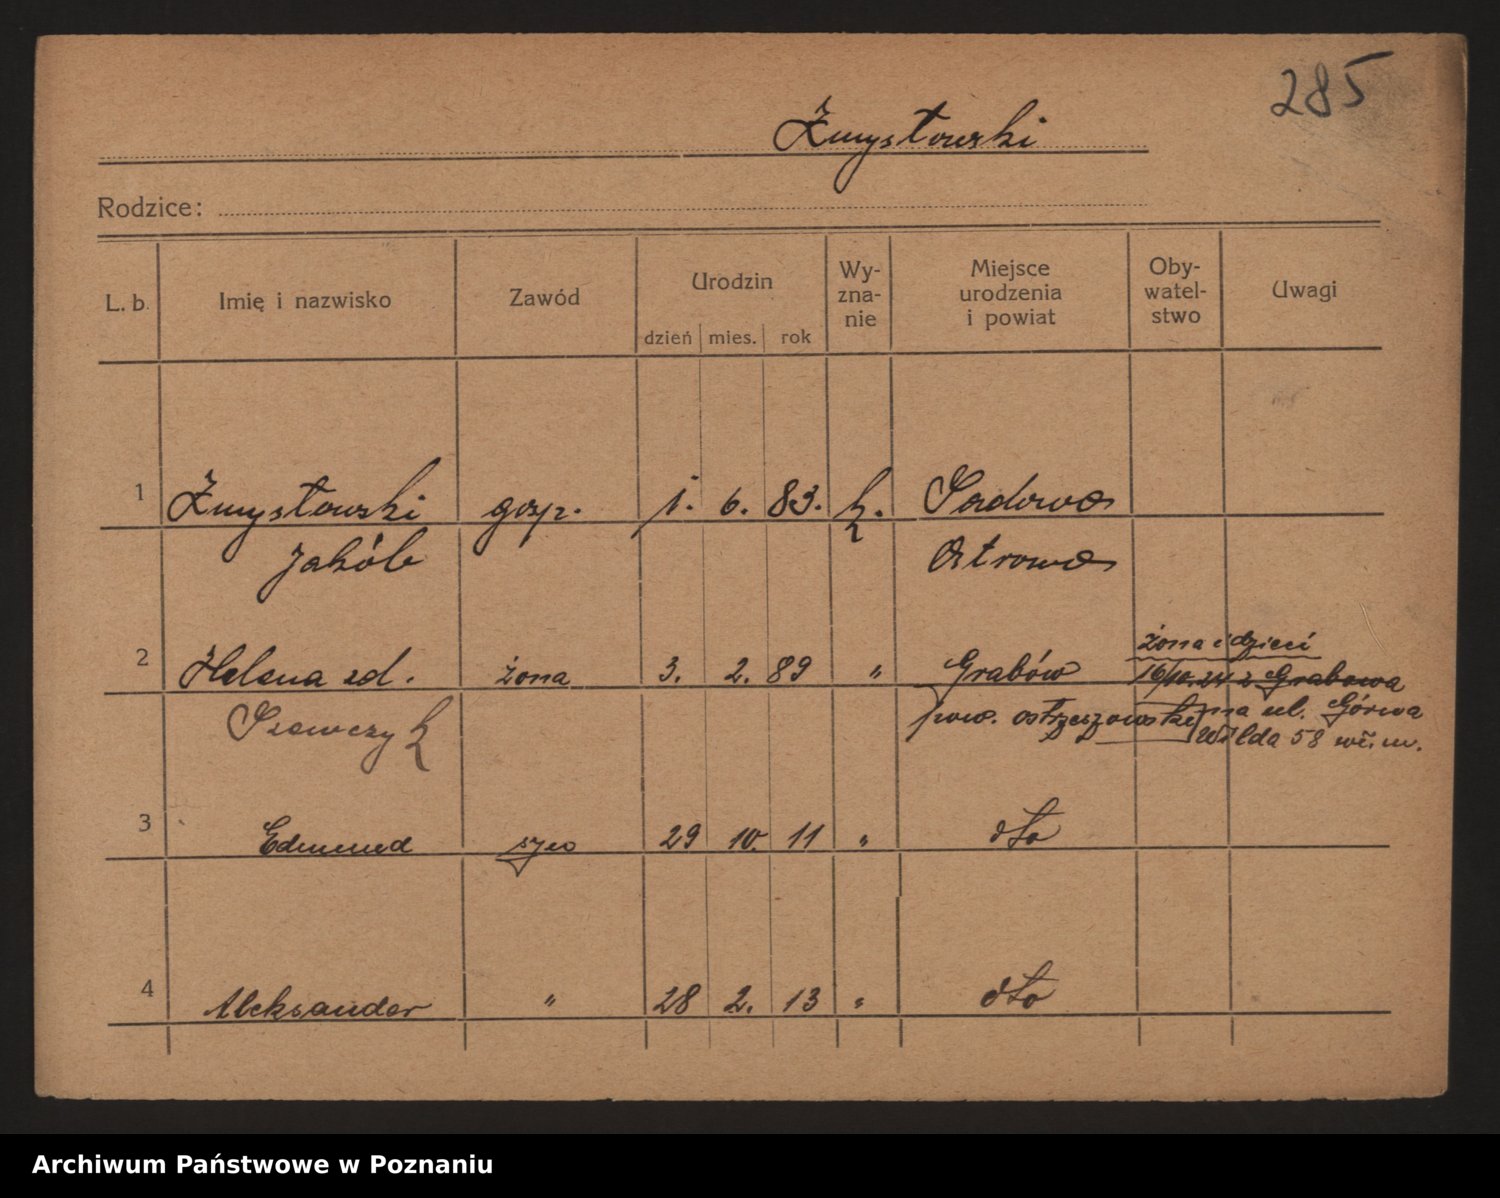 285
Żmysłowski
Rodzice:
L. b. Imię i nazwisko Zawód Urodzin dzień mies. rok Wy-zna-nie Miejsce urodzenia i powiat Oby-watel-stwo Uwagi
1 Żmysłowski gosp. 1. 6. 83. k. Sadowa
Jakób Ostrowo
żona i dzieci
2 Helena zd. żona 3. 2. 89 " Grabów 16/10.24 z Grabowa
Szewczyk pow. ostrzeszowski na ul. Górna
Wilda 58 wł. m.
3 Edmund syn 29 10. 11 " dto
4 Aleksander " 28 2. 13 " dto
Archiwum Państwowe w Poznaniu